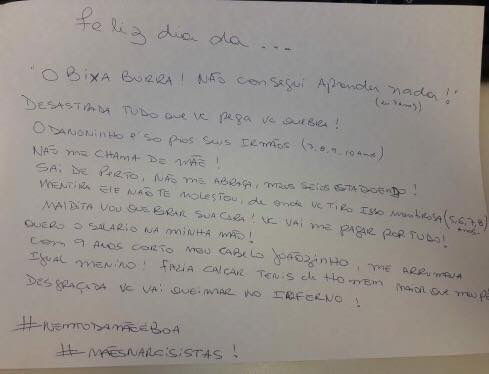 feliz dia da ...
"O BIXA BURRA! NÃO consegui Aprender nada!"
(eu 7 anos)
DESASTRADA TUDO QUE VC PEGA VC QUEBRA!
O DANONINHO É SO PROS SEUS IRMÃOS (7, 8, 9, 10 Anos)
NÃO ME CHAMA DE MÃE!
SAI DE PERTO, NÃO ME ABRAÇA, MEUS SEIOS ESTA DOENDO!
MENTIRA ELE NÃO TE MOLESTOU, de onde VC TIRO ISSO MENTIROSA (5, 6, 7, 8) anos
MALDITA VOU QUEBRAR SUA CARA! VC VAI ME PAGAR POR TUDO!
QUERO O SALARIO NA MINHA MÃO!
COM 9 ANOS CORTO MEU CABELO JOÃOZINHO, ME ARRUMAVA
IGUAL MENINO! FAZIA CALÇAR TENIS de HOMEM MAIOR QUE MEU PÉ
DESGRAÇADA VC VAI QUEIMAR NO INFERNO!
#NEMTODAMÃEÉBOA
#MÃESNARCISISTAS!